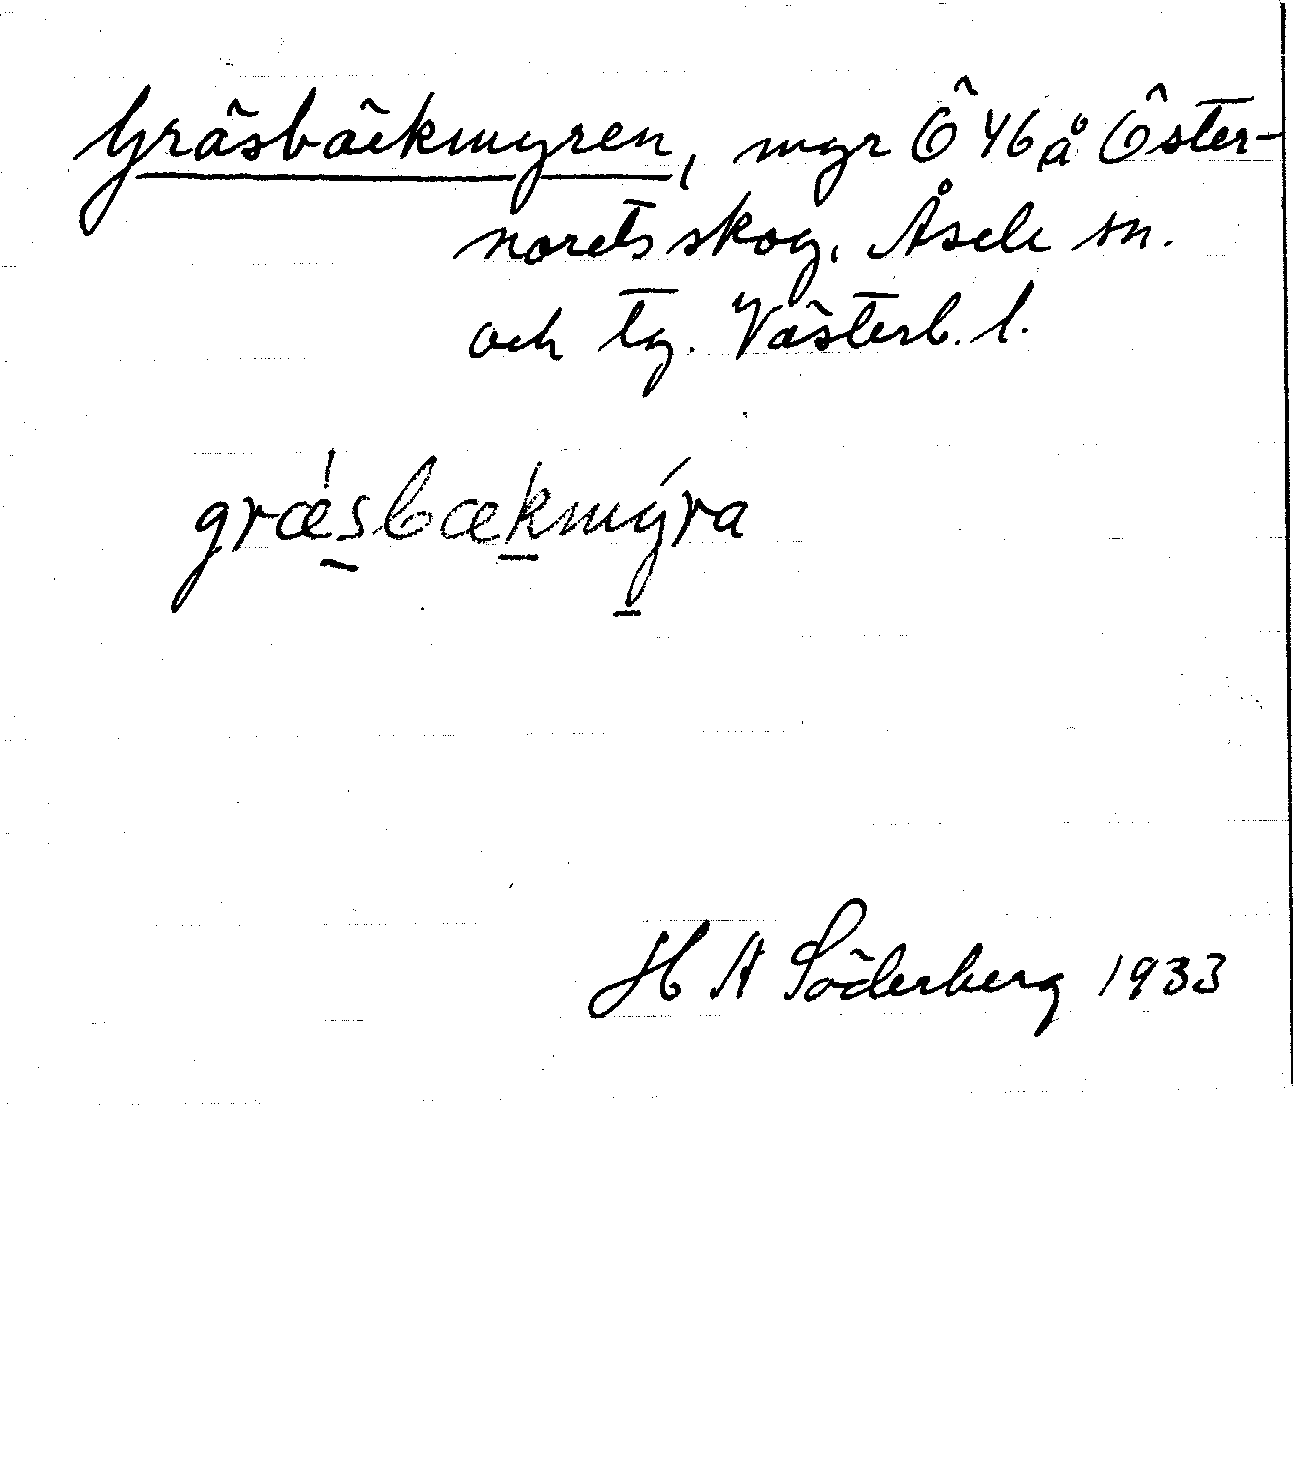 Gräsbäckmyren, myr Ö 46 å Öster-
noretsskog, Åsele sn.
och tg. Västerb. l.
græ´sbækmy´ra
H A Söderberg 1933